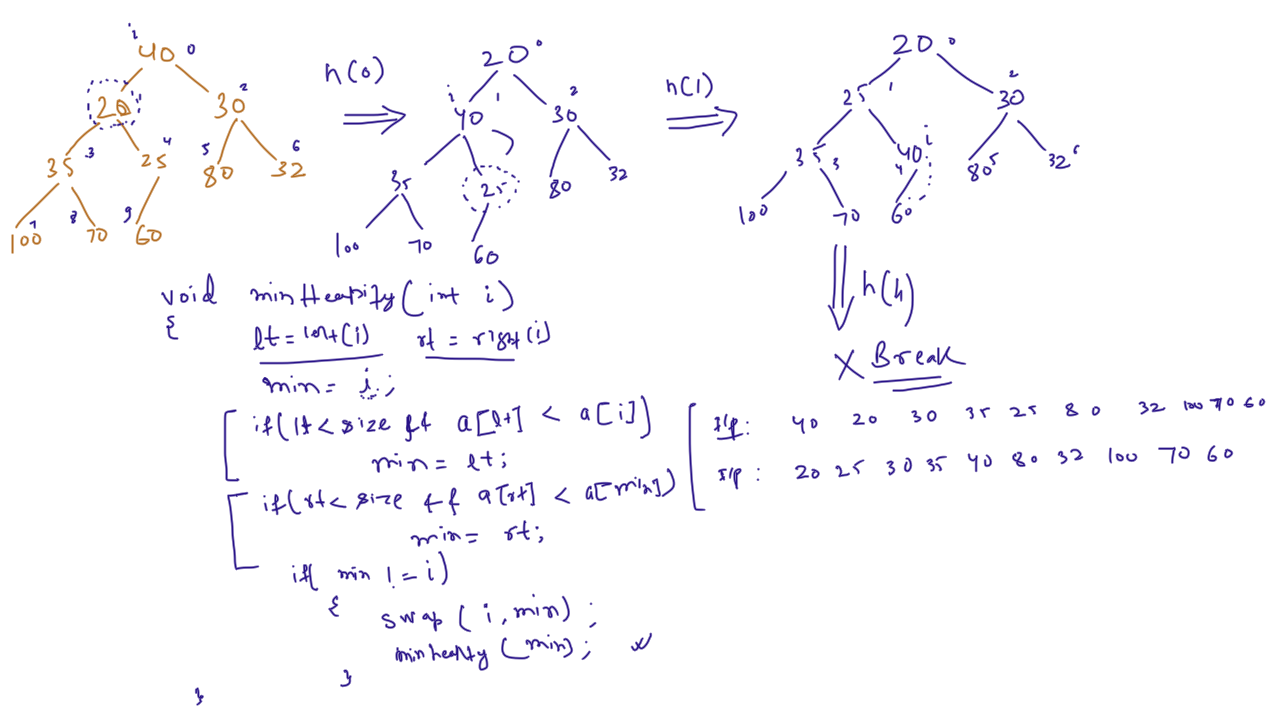 i
40 0
20
30 2
35 3
25 4
5 80
6 32
7 100
8 70
9 60
h(0)
20 0
i 40 1
30 2
35
25
80
32
100
70
60
h(1)
20 0
25 1
30 2
35 3
40 i
4
80 5
32 6
100
70
60
h(4)
X Break
void minHeapify(int i)
{
lt = left(i) rt = right(i)
min = i;
if(lt < size && a[lt] < a[i])
min = lt;
if(rt < size && a[rt] < a[min])
min = rt;
if( min != i)
{
swap ( i, min) ;
minheapify (min);
}
}
I/p: 40 20 30 35 25 80 32 100 70 60
I/p : 20 25 30 35 40 80 32 100 70 60